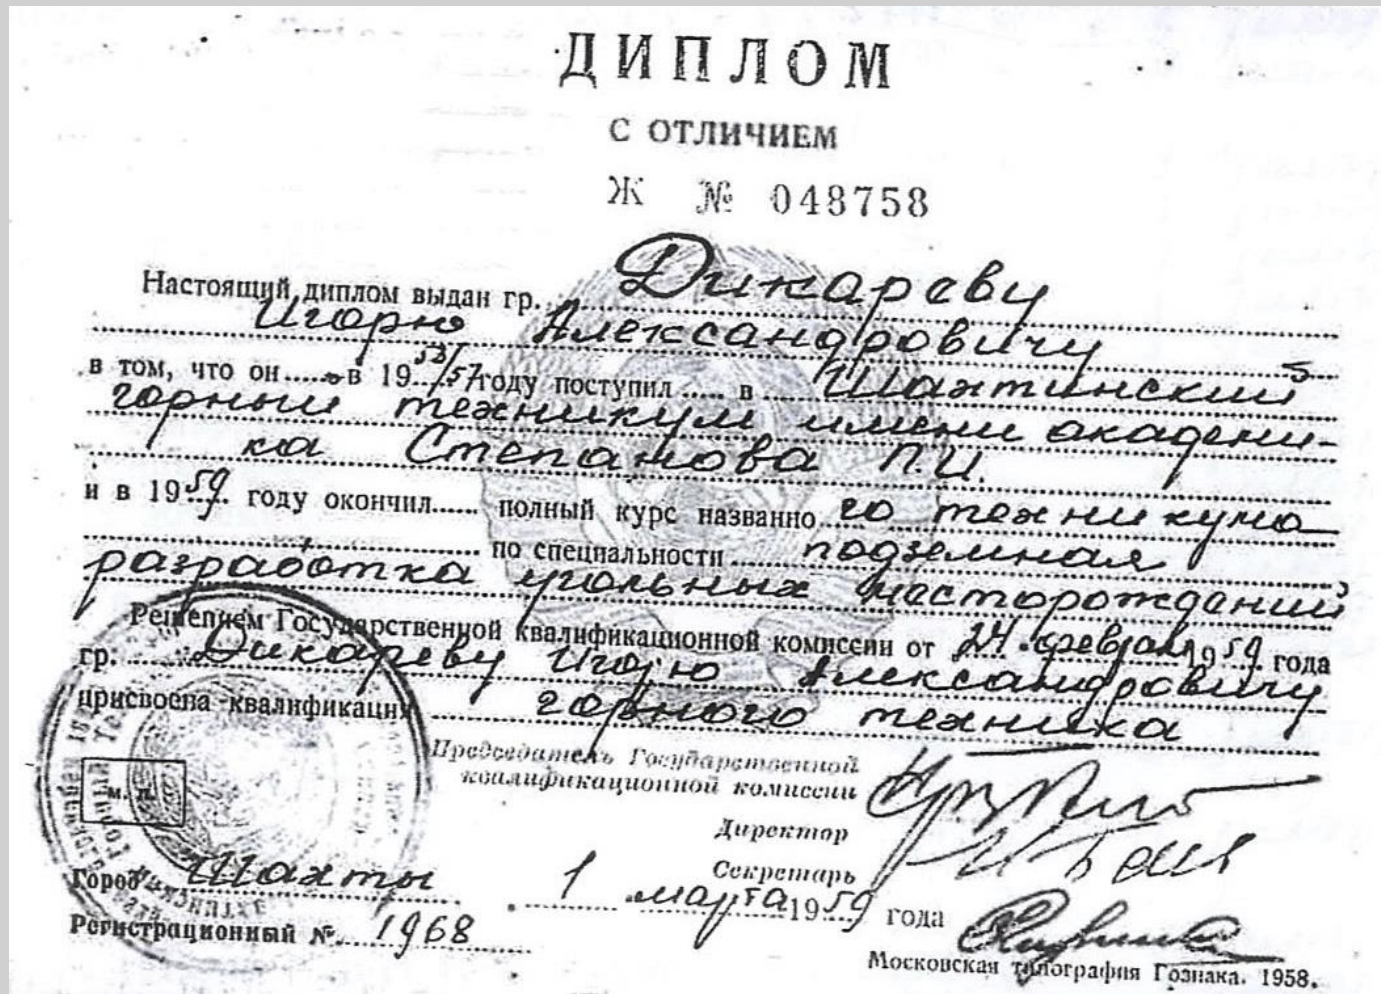 ДИПЛОМ
С ОТЛИЧИЕМ
Ж № 048758
Настоящий диплом выдан гр. Дикареву
Игорю Александровичу
в том, что он в 19 /57 году поступил в Шахтинский
горный техникум имени академи-
ка Степанова П.И.
и в 1959 году окончил полный курс названно го техникума
по специальности подземная
разработка угольных месторождений
Решением Государственной квалификационной комиссии от 24 февраля 1959 года
гр. Дикареву Игорю Александровичу
присвоена квалификация горного техника
Председатель Государственной
квалификационной комиссии
Директор
Секретарь
М. П.
Город Шахты 1 марта 1959 года
Регистрационный № 1968
Московская типография Гознака. 1958.